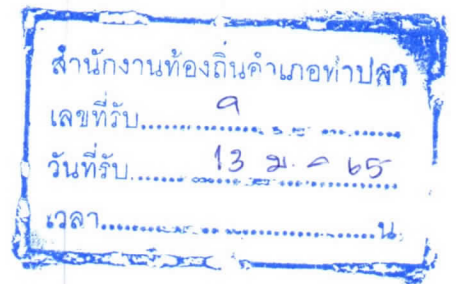 สำนักงานท้องถิ่นอำเภอท่าปลา
เลขที่รับ.......9.......
วันที่รับ.......13 ม.ค 65.......
เวลา..............................น.